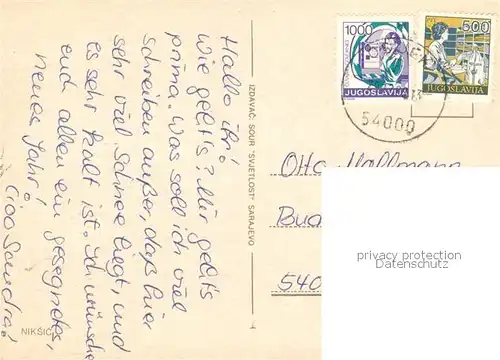 Hallo ihr!
Wie geht's? Mir geht's
prima. Was soll ich viel
schreiben außer, daß hier
sehr viel Schnee liegt, und
es sehr kalt ist. Ich wünsche
euch allen ein gesegnetes,
neues Jahr!
Ciao Sandra!
NIKŠIĆ
IZDAVAČ: SOUR "SVJETLOST" SARAJEVO
1000
JUGOSLAVIJA
500
JUGOSLAVIJA
54000
Otto Hollmann
540
privacy protection
Datenschutz